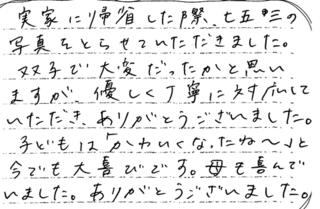 実家に帰省した際、七五三の
写真をとらせていただきました。
双子で大変だったかと思い
ますが、優しく丁寧に対応して
いただき、ありがとうございました。
子どもは「かわいくなったね～」と
今でも大喜びです。母も喜んで
いました。ありがとうございました。